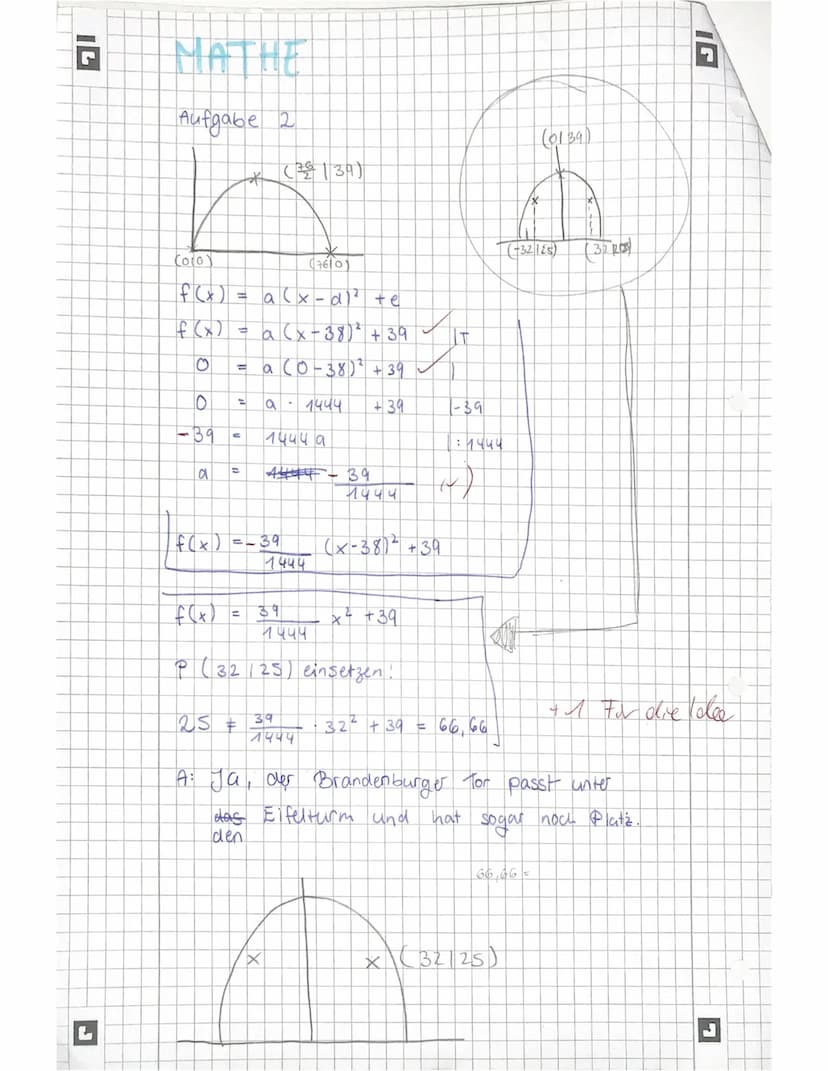 MATHE
Aufgabe 2
(0|39)
(76/2 | 39)
(0|0)
(76|0)
(-32|25)
f(x) = a(x-d)² +e
f(x) = a(x-38)² + 39 ✓ |T
0 = a(0-38)² + 39 ✓ |
0 = a · 1444 + 39 |-39
-39 = 1444a |:1444
a = - 39/1444 (✓)
f(x) = - 39/1444 (x-38)² + 39
f(x) = 39/1444 x² + 39
P (32|25) einsetzen!
25 ≠ 39/1444 · 32² + 39 = 66,66
+1 Für die Idee
A: Ja, der Brandenburger Tor passt unter
das Eifelturm und hat sogar noch Platz.
den
66,66 =
(32|25)